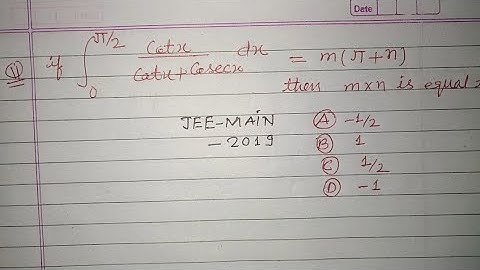 Date
(V) if ∫₀^π/2 Cotx / Cotx + Cosecx dx = m(π+n)
then m×n is equal
JEE-MAIN
- 2019
(A) -1/2
(B) 1
(C) 1/2
(D) -1